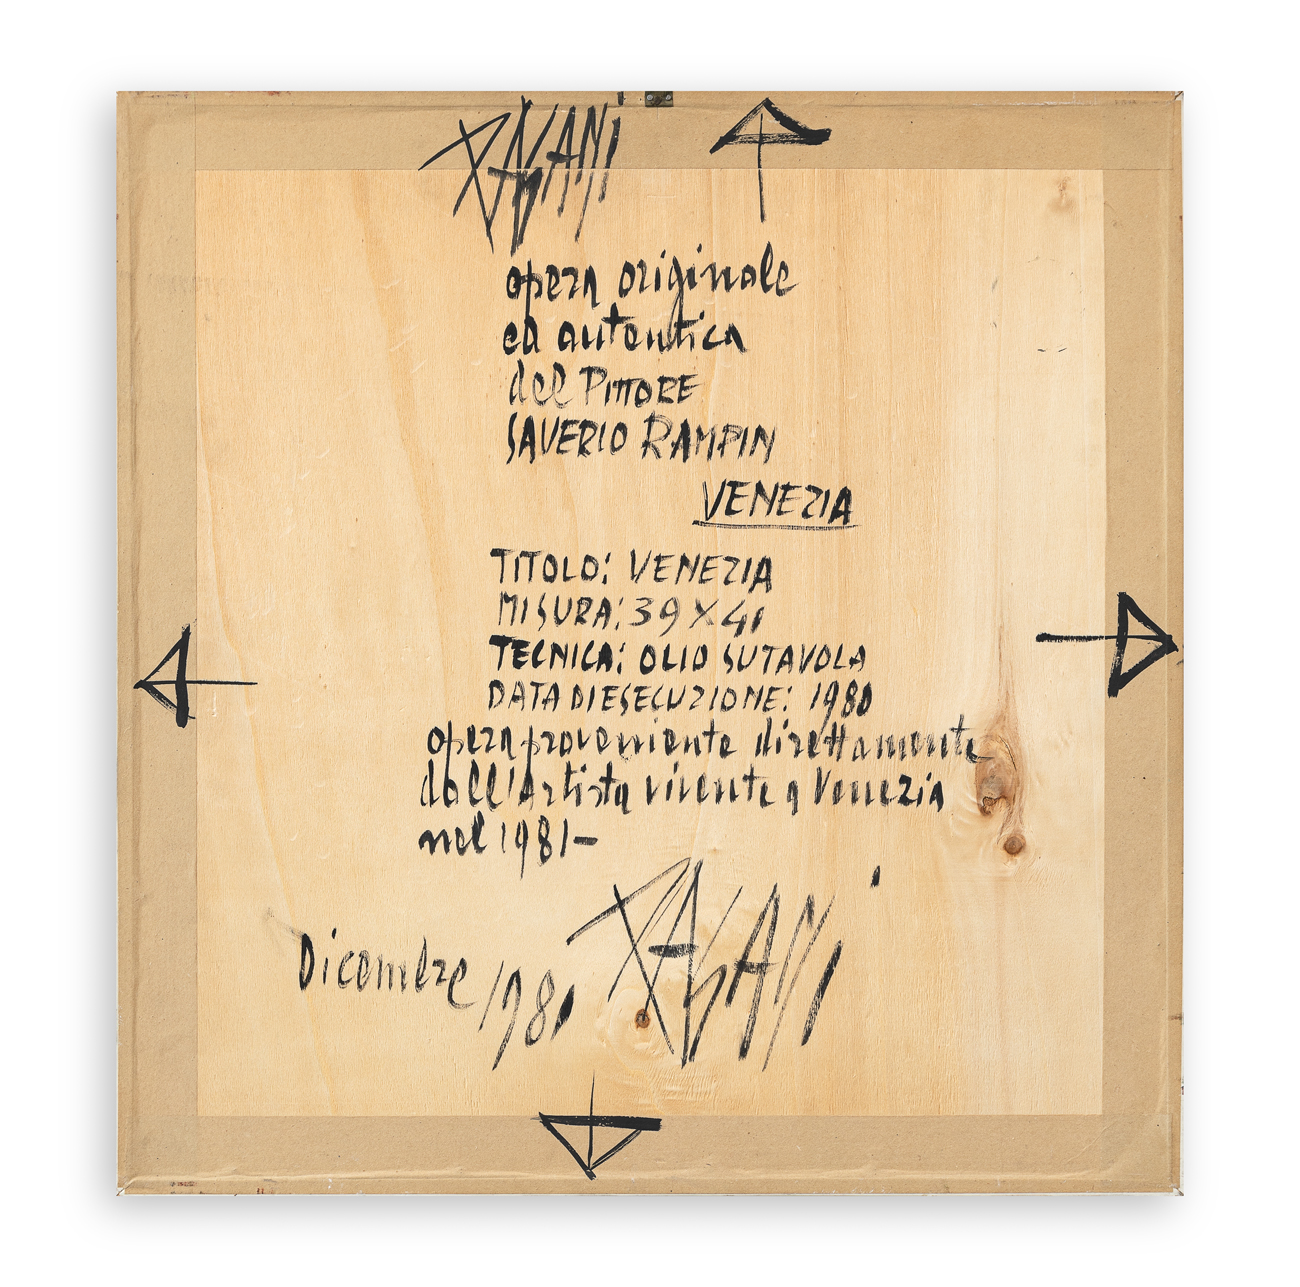 PAGANI
opera originale
ed autentica
del PITTORE
SAVERIO RAMPIN
VENEZIA
TITOLO: VENEZIA
MISURA: 39 X 41
TECNICA: OLIO SU TAVOLA
DATA DI ESECUZIONE: 1980
opera proveniente direttamente
dall'Artista vivente a Venezia
nel 1981-
Dicembre 1981 PAGANI